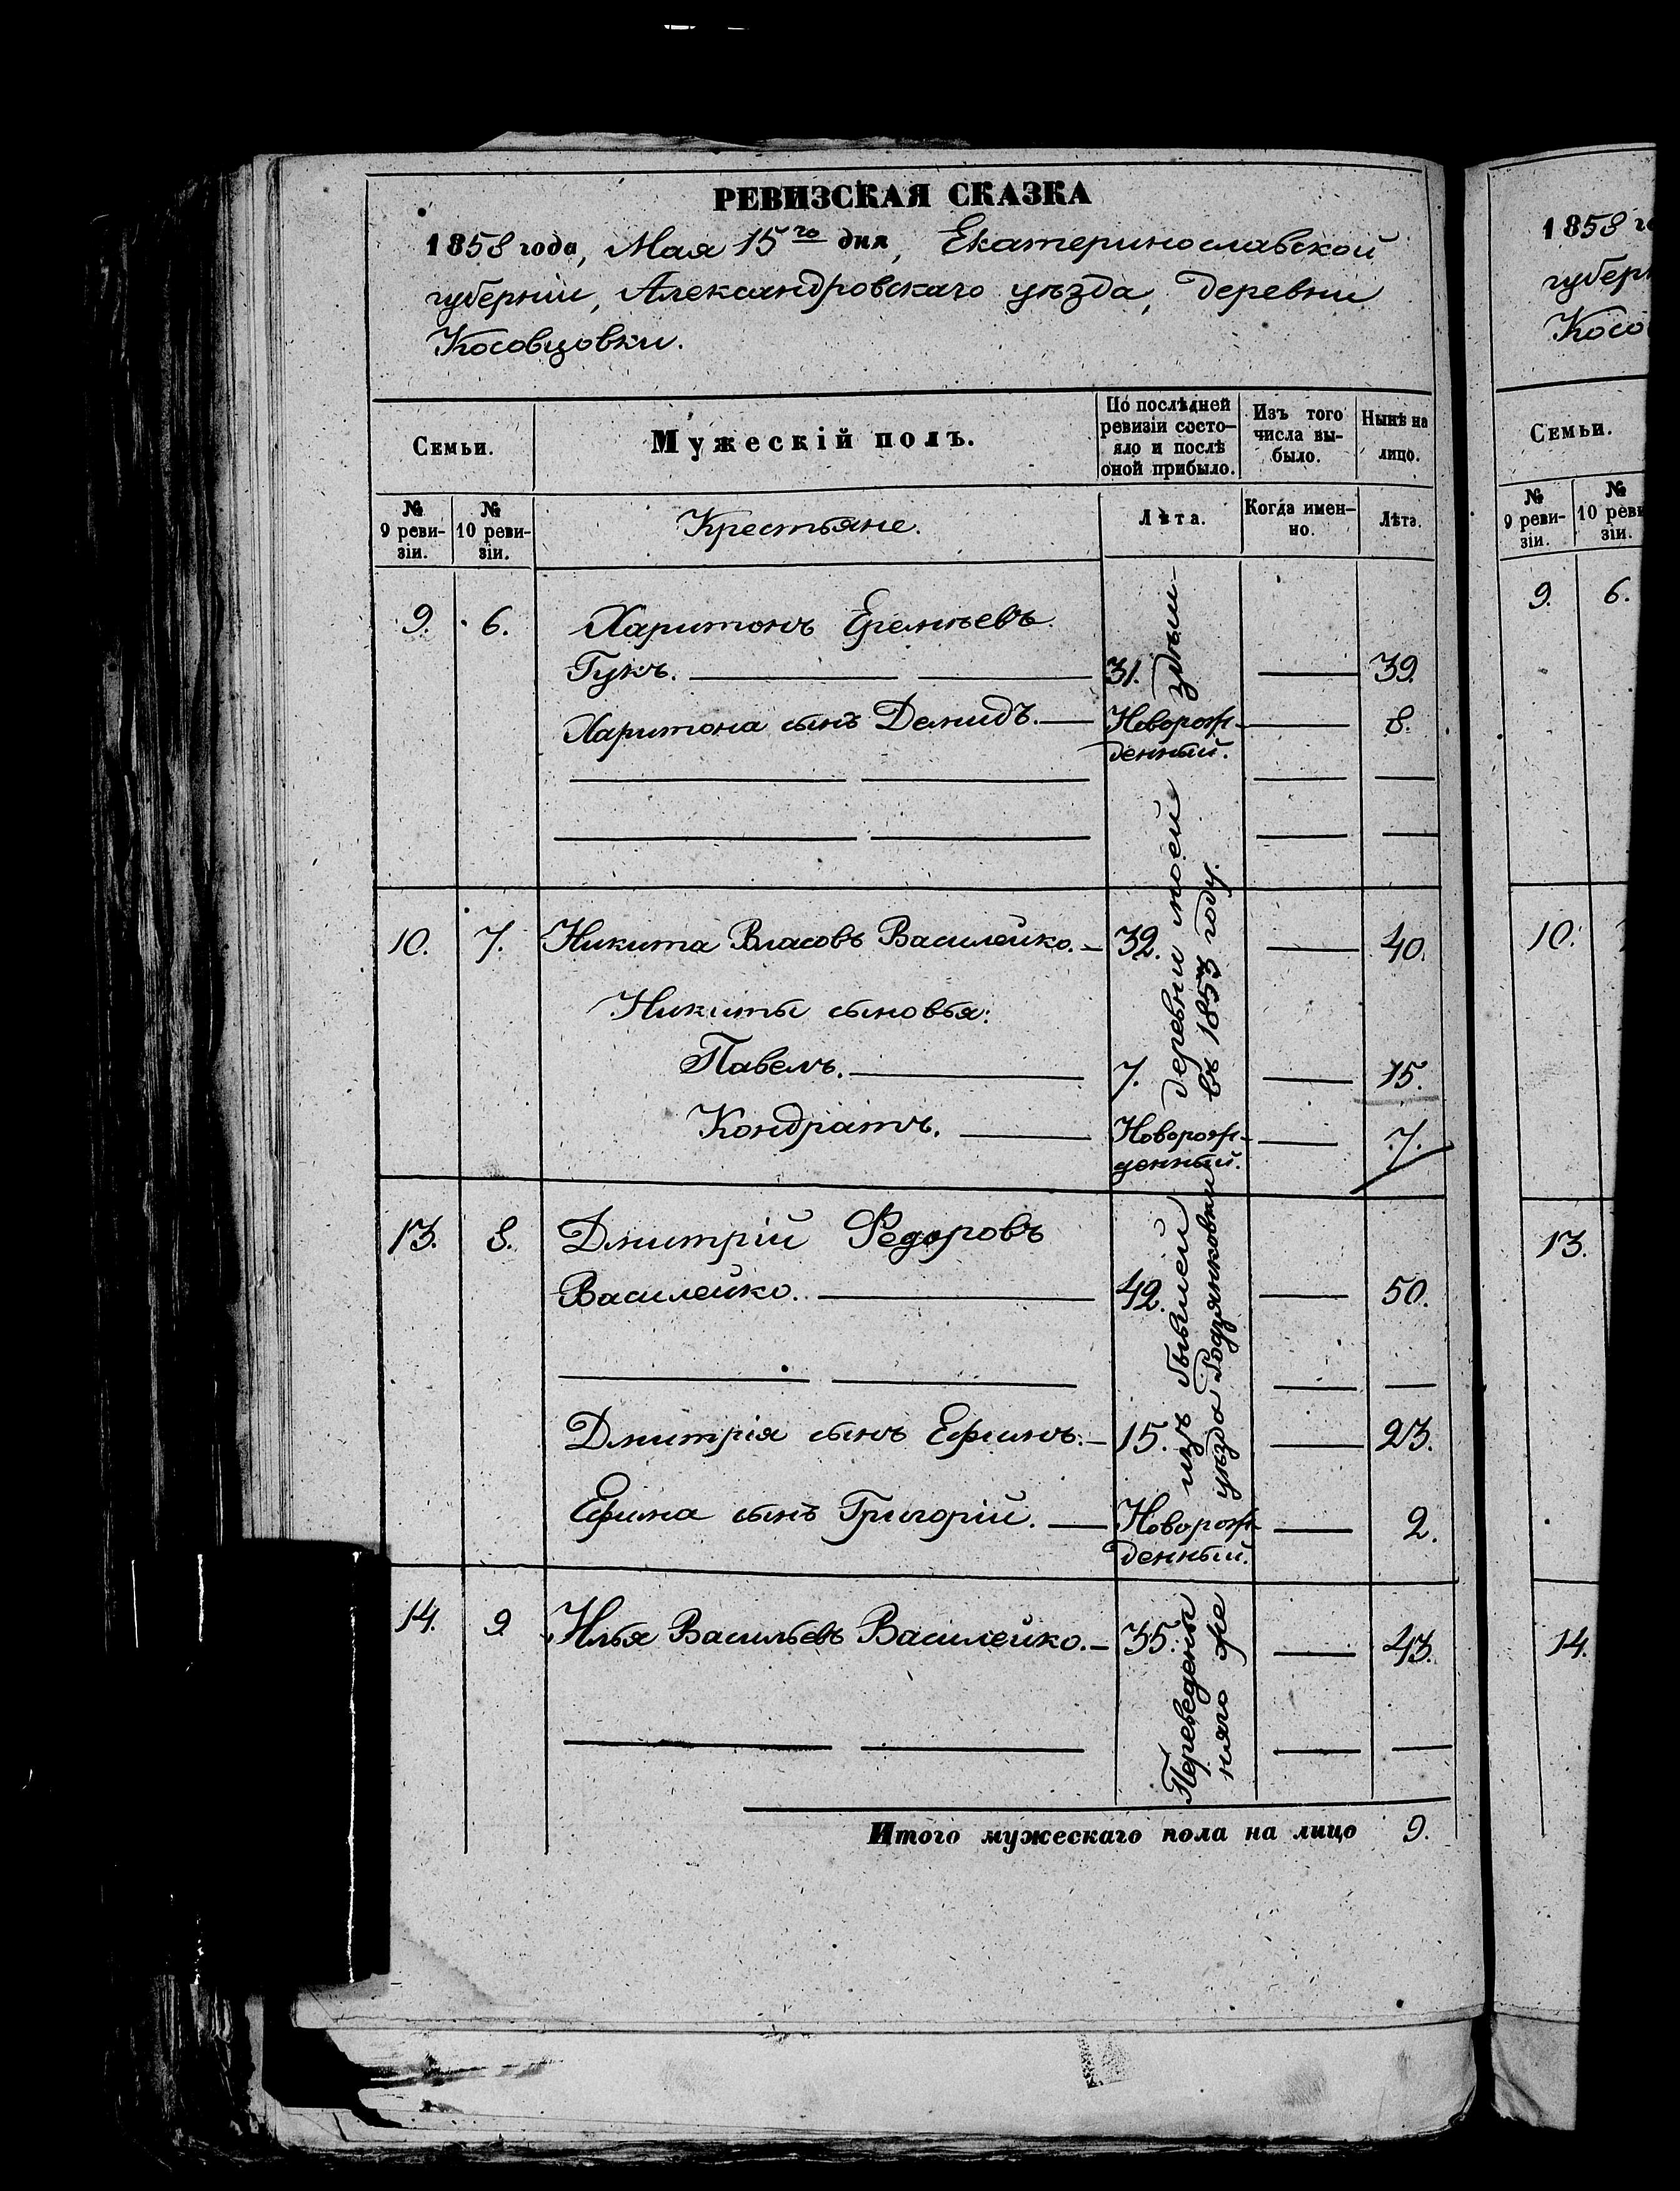 РЕВИЗСКАЯ СКАЗКА
1858 года, Мая 15го дня, Екатеринославской
губерніи, Александровскаго уѣзда, деревни
Косовцовки.
Семьи.
Мужескій полъ.
По послѣдней ревизіи состо-
яло и послѣ
оной прибыло.
Изъ того
числа вы-
было.
Нынѣ на
лицо.
№
9 реви-
зіи.
№
10 реви-
зіи.
Крестьяне.
Лѣта.
Когда имен-
но.
Лѣта.
9. 6. Харитонъ Еремѣевъ
Гукъ. 31. 39.
Харитона сынъ Демидъ. Новорож- 8.
денный.
10. 7. Никита Власовъ Василейко. 32. 40.
Никиты сыновья:
Павелъ. 7. 15.
Кондратъ. Новорож- 7.
денный.
13. 8. Дмитрій Федоровъ
Василейко. 42. 50.
Дмитрія сынъ Ефимъ. 15. 23.
Ефима сынъ Григорій. Новорож- 2.
денный.
14. 9. Илья Васильевъ Василейко. 35. 43.
Переведены изъ бывшей деревни моей здѣш-
няго же уѣзда Родзянковки въ 1853 году.
Итого мужескаго пола на лицо 9.
1858 го
губерн
Косо
Семьи.
№
9 реви-
зіи.
№
10 реви
зіи.
9. 6.
10.
13.
14.